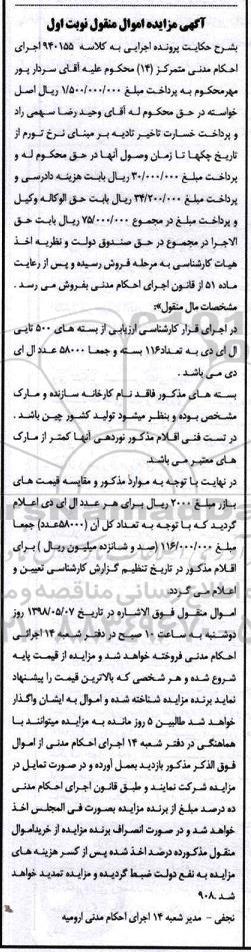 آگهی مزایده اموال منقول نوبت اول
بشرح حکایت پرونده اجرایی به کلاسه ۹۴۰۱۵۵ اجرای
احکام مدنی متمرکز (۱۴) محکوم علیه آقای سردار پور
مهرمحکوم به پرداخت مبلغ ۱/۵۰۰/۰۰۰/۰۰۰ ریال اصل
خواسته در حق محکوم له آقای وحید رضا سهمی راد
و پرداخت خسارت تاخیر تادیه بر مبنای نرخ تورم از
تاریخ چکها تا زمان وصول آنها در حق محکوم له و
پرداخت مبلغ ۳۰/۰۰۰/۰۰۰ ریال بابت هزینه دادرسی و
پرداخت مبلغ ۳۴/۲۰۰/۰۰۰ ریال بابت حق الوکاله وکیل
و پرداخت مبلغ در مجموع ۷۵/۰۰۰/۰۰۰ ریال بابت حق
الاجرا در مجموع در حق صندوق دولت و نظریه اخذ
هیات کارشناسی به مرحله فروش رسیده و پس از رعایت
ماده ۵۱ از قانون اجرای احکام مدنی بفروش می رسد .
مشخصات مال منقول»:
در اجرای قرار کارشناسی ارزیابی از بسته های ۵۰۰ تایی
ال ای دی به تعداد۱۱۶ بسته و جمعا ۵۸۰۰۰ عدد ال ای
دی می باشد .
بسته های مذکور فاقد نام کارخانه سازنده و مارک
مشخص بوده و بنظر میشود تولید کشور چین باشد .
در تست فنی اقلام مذکور نوردهی آنها کمتر از مارک
های معتبر می باشد.
در نهایت با توجه به موارد مذکور و مقایسه قیمت های
بازر مبلغ ۲۰۰۰ ریال برای هر عدد ال ای دی اعلام
گردید که با توجه به تعداد کل آن (۵۸۰۰۰عدد) جمعا
مبلغ ۱۱۶/۰۰۰/۰۰۰ (صد و شانزده میلیون ریال ) برای
اقلام مذکور در تاریخ تنظیم گزارش کارشناسی تعیین و
اعلام می گردد
اموال منقول فوق الاشاره در تاریخ ۱۳۹۸/۰۵/۰۷ روز
دوشنبه از ساعت ۱۰ صبح در دفتر شعبه ۱۴ اجرائی
احکام مدنی فروخته خواهد شد و مزایده از قیمت پایه
شروع شده و هر شخصی که بالاترین قیمت را پیشنهاد
نماید برنده مزایده شناخته شده و اموال به ایشان واگذار
خواهد شد طالبین ۵ روز مانده به مزایده میتوانند با
هماهنگی در دفتر شعبه ۱۴ اجرای احکام مدنی از اموال
فوق الذکر مذکور بازدید بعمل آورده و در صورت تمایل در
مزایده شرکت نمایند و طبق قانون اجرای احکام مدنی
ده درصد مبلغ از برنده مزایده بصورت فی المجلس اخذ
خواهد شد و در صورت انصراف برنده مزایده از خریداموال
منقول مذکورده درصد اخذ شده پس از کسر هزینه های
مزایده به نفع دولت ضبط گردیده و مزایده تمدید خواهد
شد .۹۰۸
نجفی - مدیر شعبه ۱۴ اجرای احکام مدنی ارومیه